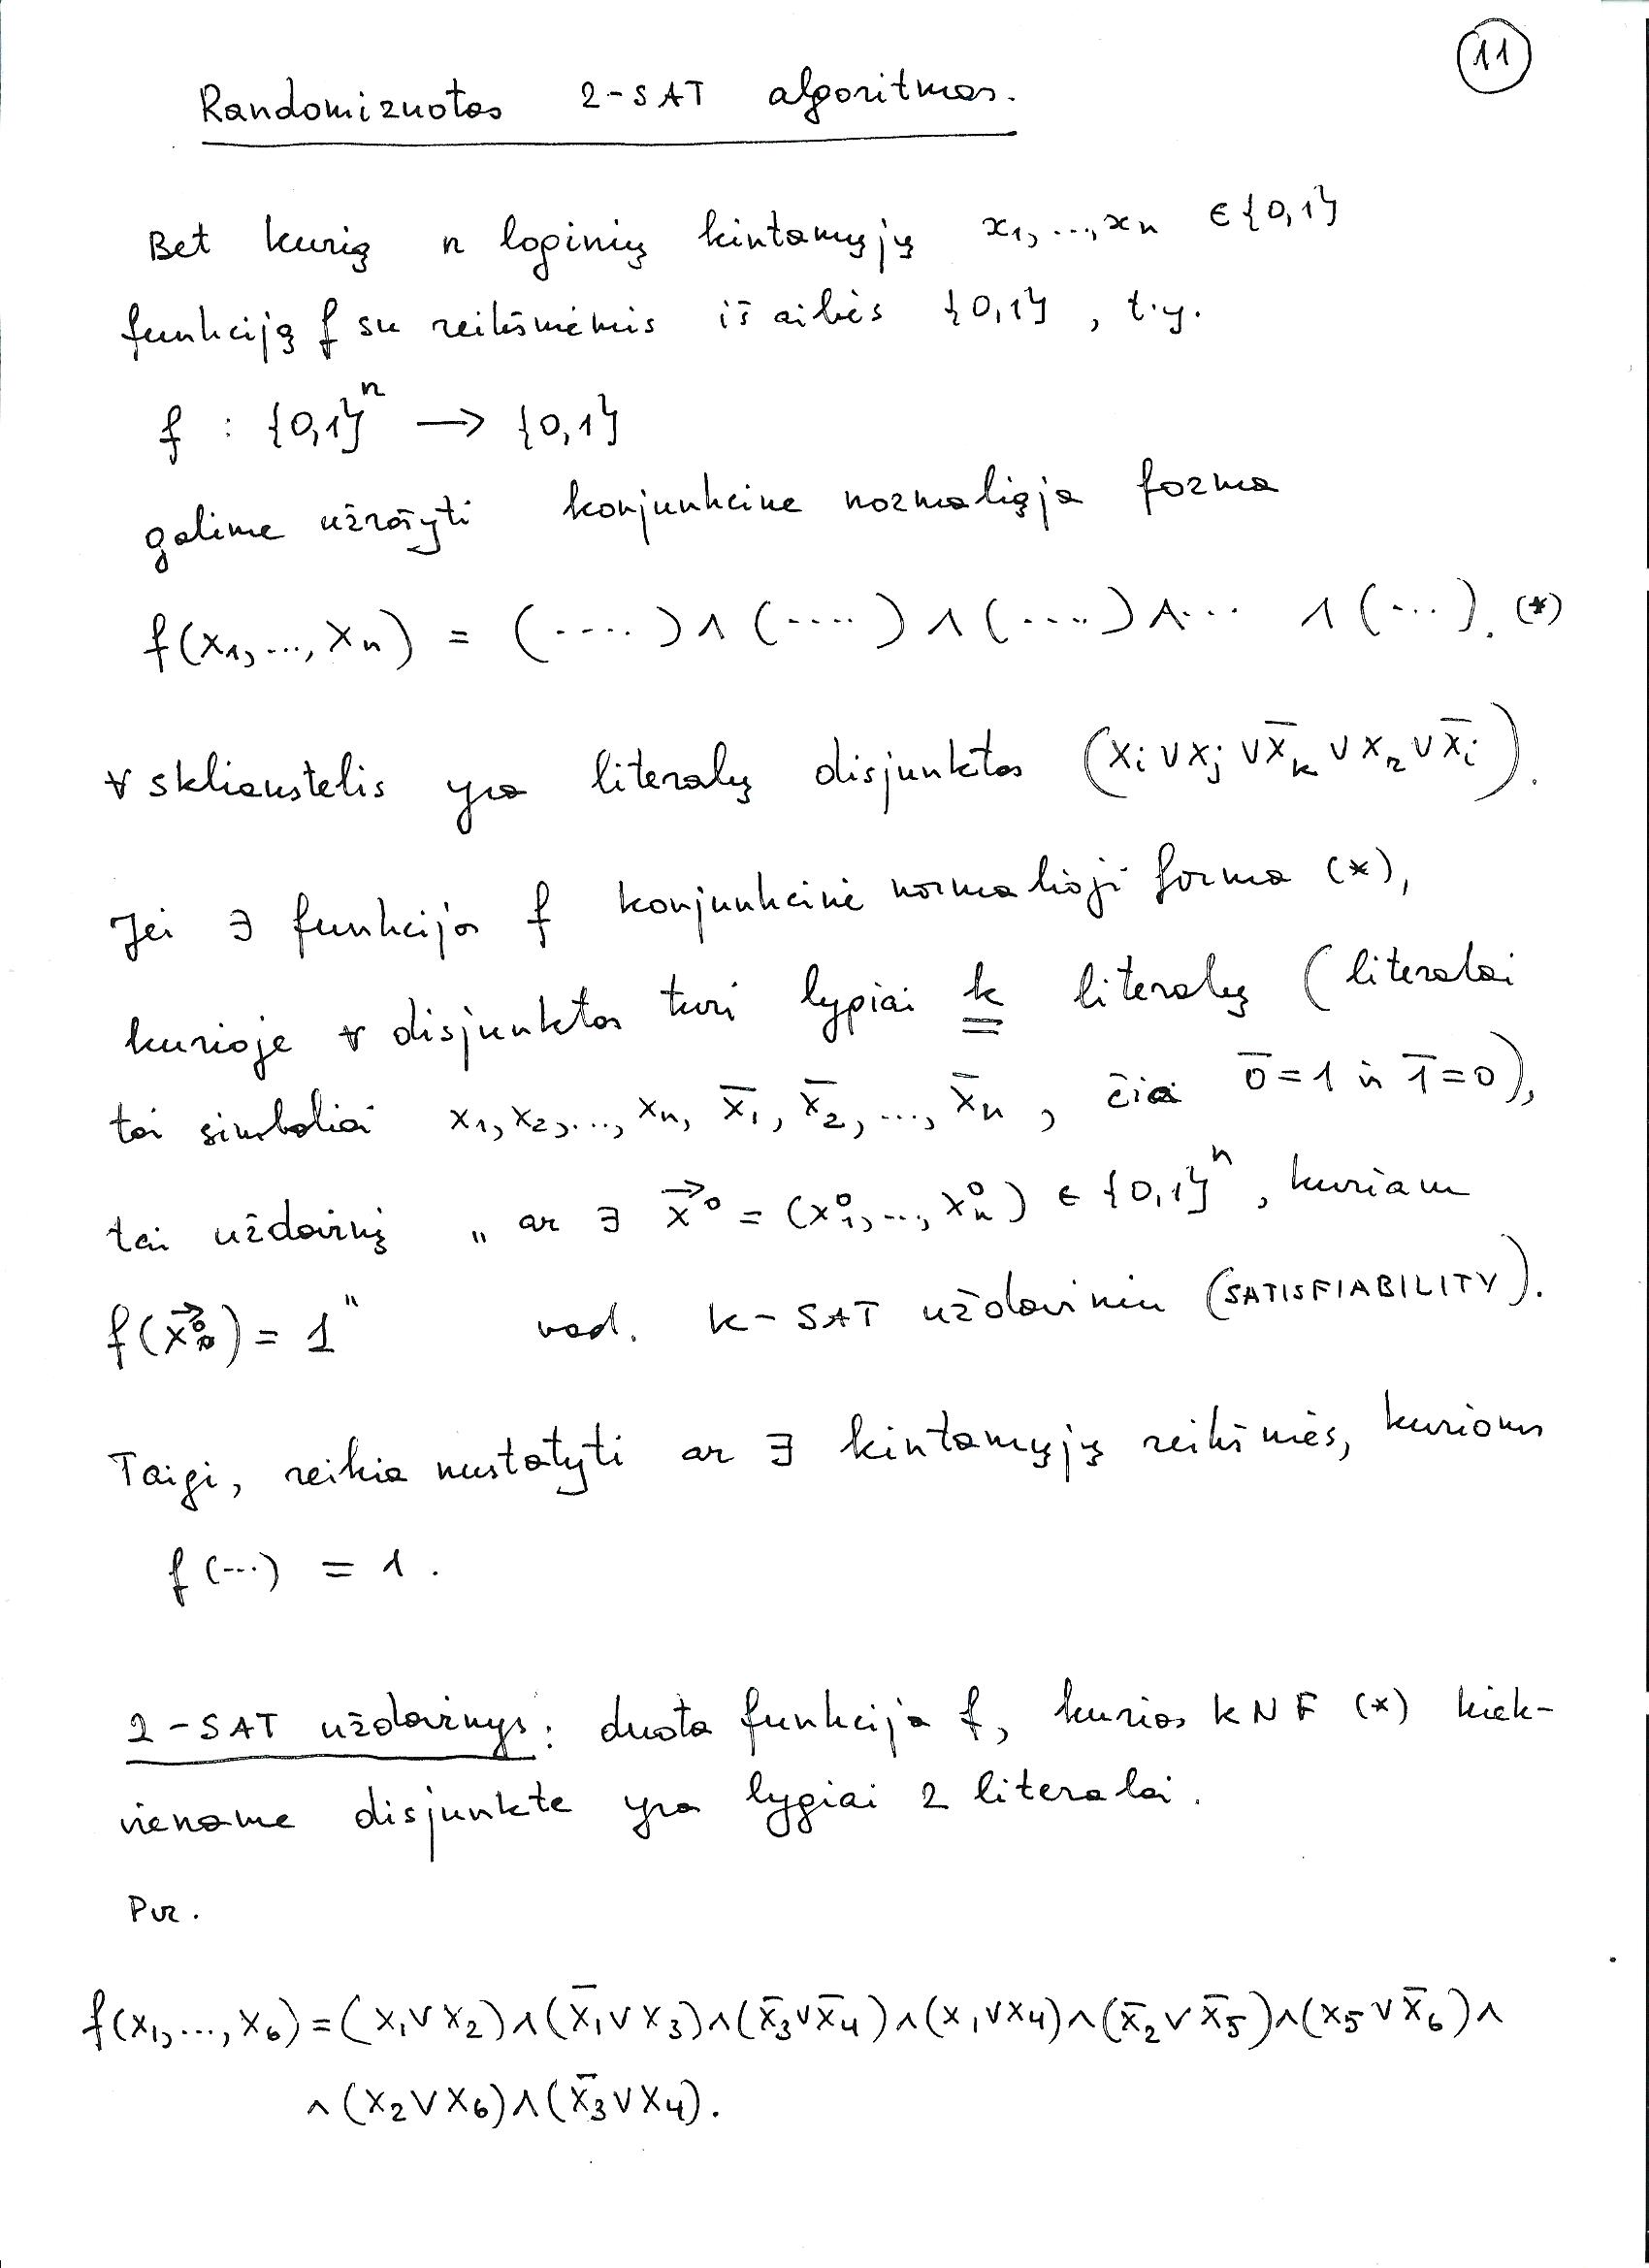 11
Randomizuotas 2-SAT algoritmas.
Bet kurią n loginių kintamųjų x₁, ..., xₙ ∈ {0,1}
funkciją f su reikšmėmis iš aibės {0,1}, t.y.
f : {0,1}ⁿ → {0,1}
galime užrašyti konjunkcine normaliąja forma
f(x₁, ..., xₙ) = (....) ∧ (....) ∧ (....) ∧ ... ∧ (...). (*)
∀ skliaustelis yra literalų disjunktas (xᵢ ∨ xⱼ ∨ x̄ₖ ∨ xᵣ ∨ x̄ᵢ).
Jei ∃ funkcijos f konjunkcinė normalioji forma (*),
kurioje ∀ disjunktas turi lygiai k literalų (literalai
tai simboliai x₁, x₂, ..., xₙ, x̄₁, x̄₂, ..., x̄ₙ, čia 0̄=1 ir 1̄=0),
tai uždavinį „ar ∃ x⃗⁰ = (x₁⁰, ..., xₙ⁰) ∈ {0,1}ⁿ, kuriam
f(x⃗⁰) = 1" vad. k-SAT uždaviniu (SATISFIABILITY).
Taigi, reikia nustatyti ar ∃ kintamųjų reikšmės, kurioms
f(...) = 1.
2-SAT uždavinys: duota funkcija f, kurios KNF (*) kiek-
viename disjunkte yra lygiai 2 literalai.
Pvz.
f(x₁, ..., x₆) = (x₁ ∨ x₂) ∧ (x̄₁ ∨ x₃) ∧ (x̄₃ ∨ x̄₄) ∧ (x₁ ∨ x₄) ∧ (x̄₂ ∨ x̄₅) ∧ (x₅ ∨ x̄₆) ∧
∧ (x₂ ∨ x₆) ∧ (x̄₃ ∨ x₄).